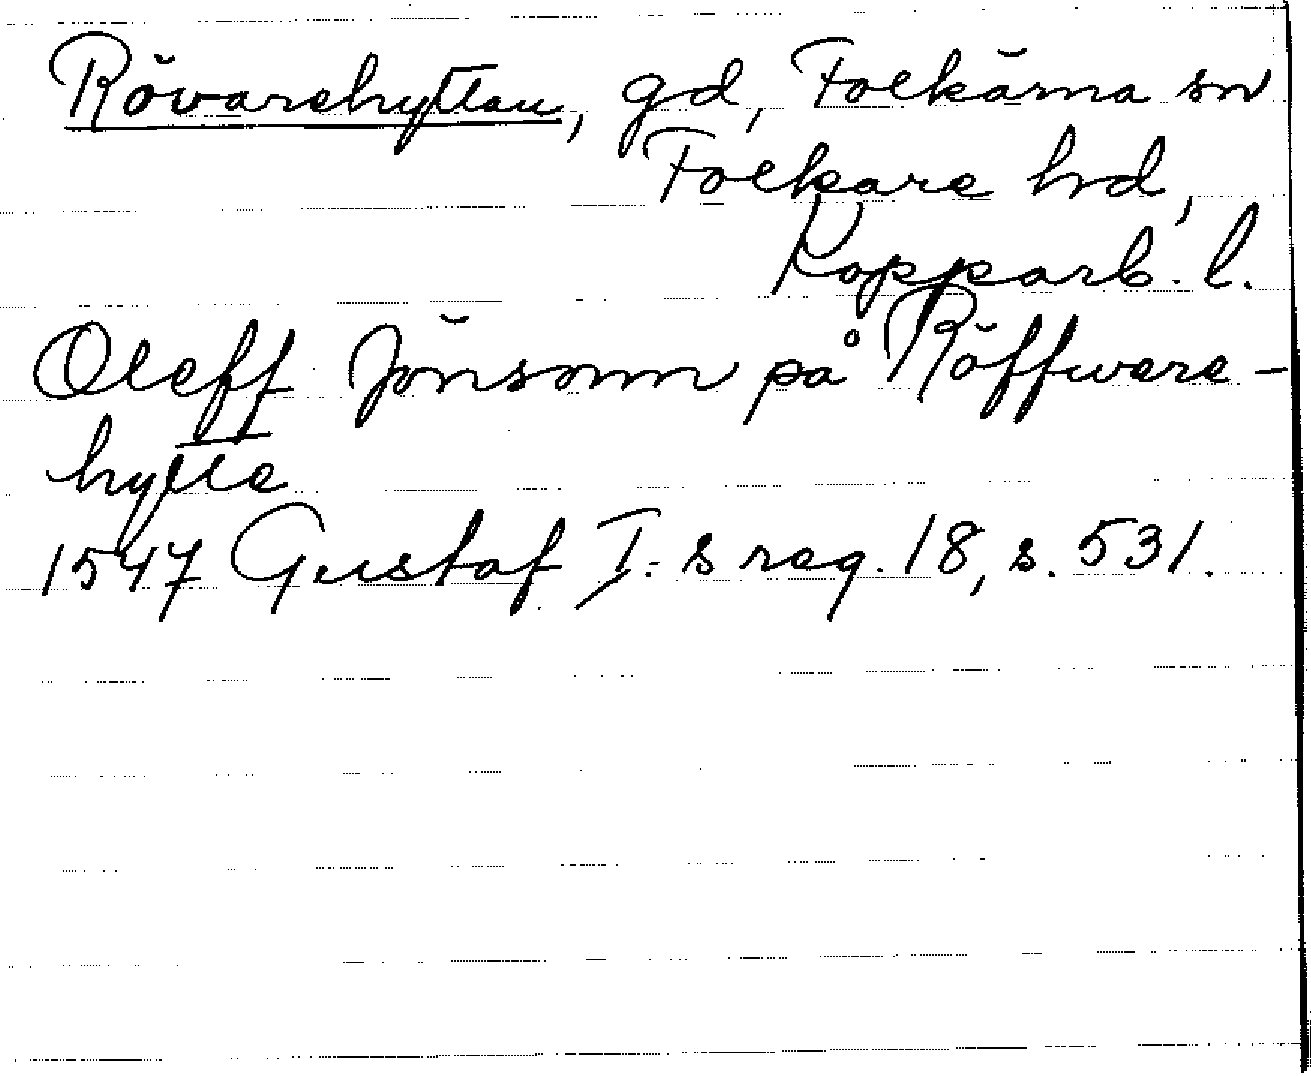 Rövarehyttan, gd, Folkärna sn
Folkare hd,
Kopparb. l.
Oleff Jönsonn på Röffware-
hytte
1547 Gustaf I:s reg. 18, s. 531.